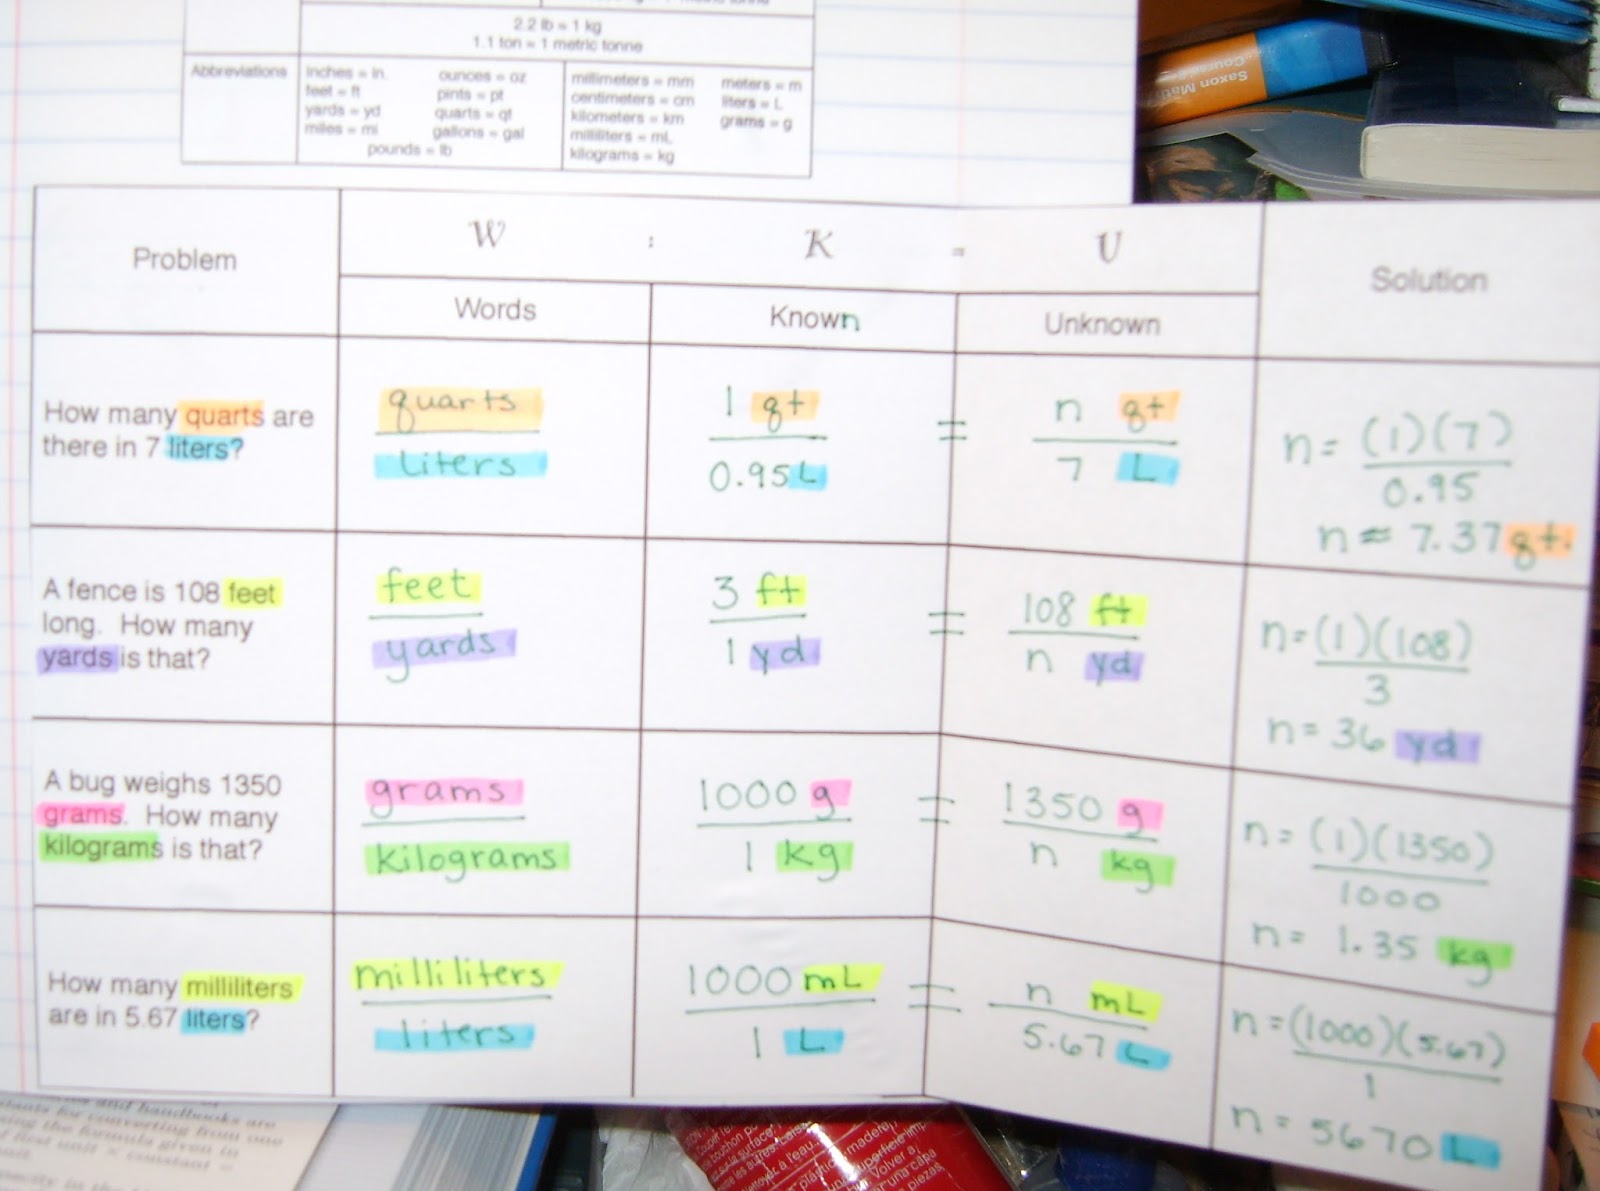 2.2 lb = 1 kg
1.1 ton = 1 metric tonne
Abbreviations
inches = in.
feet = ft
yards = yd
miles = mi
ounces = oz
pints = pt
quarts = qt
gallons = gal
pounds = lb
millimeters = mm
centimeters = cm
kilometers = km
milliliters = mL
kilograms = kg
meters = m
liters = L
grams = g
Saxon Math
Course
Problem
W : K = U
Solution
Words
Known
Unknown
How many quarts are
there in 7 liters?
quarts
liters
1 qt
0.95 L
=
n qt
7 L
n = (1)(7)
0.95
n ≈ 7.37 qt.
A fence is 108 feet
long. How many
yards is that?
feet
yards
3 ft
1 yd
=
108 ft
n yd
n = (1)(108)
3
n = 36 yd
A bug weighs 1350
grams. How many
kilograms is that?
grams
kilograms
1000 g
1 kg
=
1350 g
n kg
n = (1)(1350)
1000
n = 1.35 kg
How many milliliters
are in 5.67 liters?
milliliters
liters
1000 mL
1 L
=
n mL
5.67 L
n = (1000)(5.67)
1
n = 5670 L
and handbooks are
for converting from one
the formula given in
first unit × constant =
in the